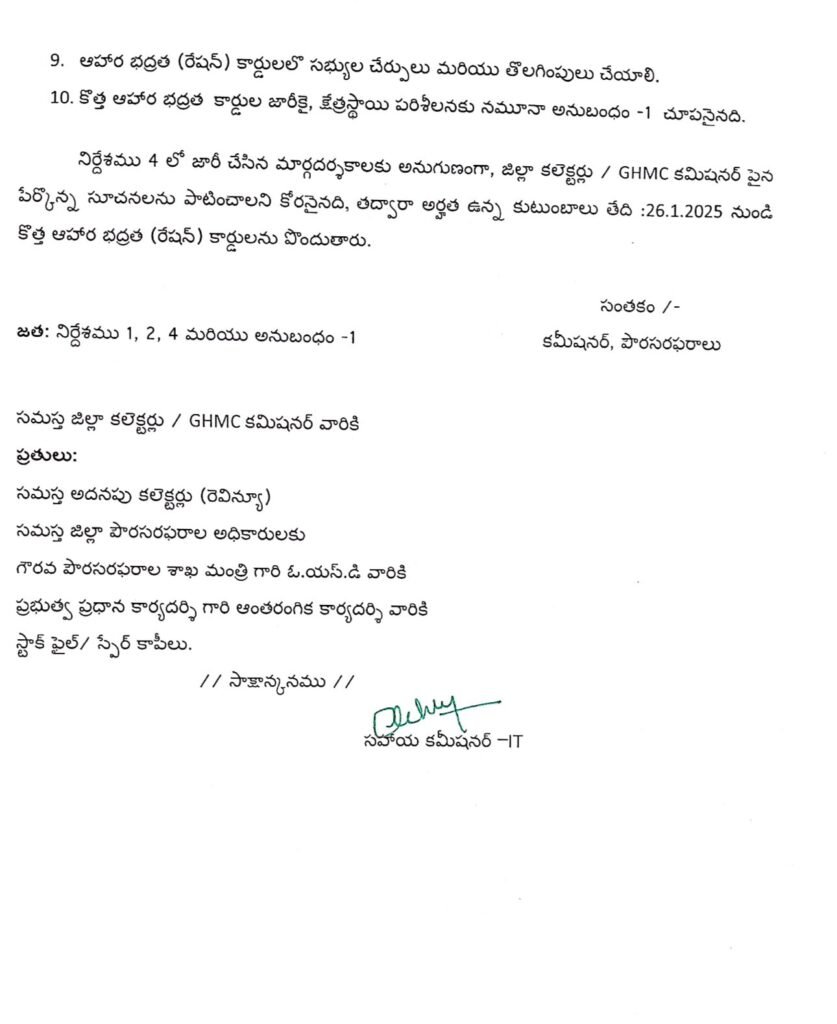 9. ఆహార భద్రత (రేషన్) కార్డులలో సభ్యుల చేర్పులు మరియు తొలగింపులు చేయాలి.
10. కొత్త ఆహార భద్రత కార్డుల జారీకై, క్షేత్రస్థాయి పరిశీలనకు నమూనా అనుబంధం -1 చూపనైనది.
నిర్దేశము 4 లో జారీ చేసిన మార్గదర్శకాలకు అనుగుణంగా, జిల్లా కలెక్టర్లు / GHMC కమిషనర్ పైన
పేర్కొన్న సూచనలను పాటించాలని కోరనైనది, తద్వారా అర్హత ఉన్న కుటుంబాలు తేది :26.1.2025 నుండి
కొత్త ఆహార భద్రత (రేషన్) కార్డులను పొందుతారు.
సంతకం /-
జత: నిర్దేశము 1, 2, 4 మరియు అనుబంధం -1
కమీషనర్, పౌరసరఫరాలు
సమస్త జిల్లా కలెక్టర్లు / GHMC కమిషనర్ వారికి
ప్రతులు:
సమస్త అదనపు కలెక్టర్లు (రెవిన్యూ)
సమస్త జిల్లా పౌరసరఫరాల అధికారులకు
గౌరవ పౌరసరఫరాల శాఖ మంత్రి గారి ఓ.యస్.డి వారికి
ప్రభుత్వ ప్రధాన కార్యదర్శి గారి ఆంతరంగిక కార్యదర్శి వారికి
స్టాక్ ఫైల్/ స్పేర్ కాపీలు.
// సాక్షాన్కనము //
సహాయ కమీషనర్ –IT